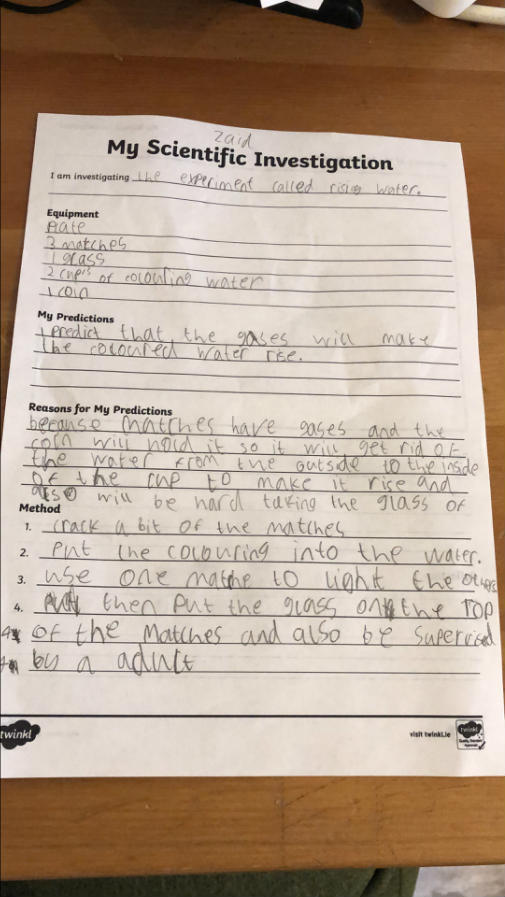 zaid
My Scientific Investigation
I am investigating the experiment called rising water.
Equipment
Plate
3 matches
1 glass
2 cups of colouling water
1 coin
My Predictions
I predict that the gases will make
the coloured water rise.
Reasons for My Predictions
because matches have gases and the
coin will hold it so it will get rid of
the water from the outside to the inside
of the cup to make it rise and
also will be hard taking the glass of
Method
1. crack a bit of the matches
2. Put the colouring into the water.
3. use one matche to light the others
4. then put the glass on the top
of the matches and also be supervised
by a adult
twinkl
visit twinkl.ie
twinkl